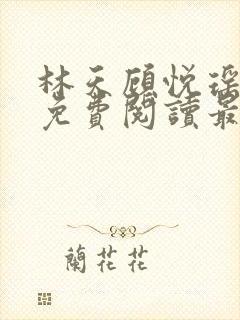 林天顧悅瑤
免費閱讀最
蘭花花